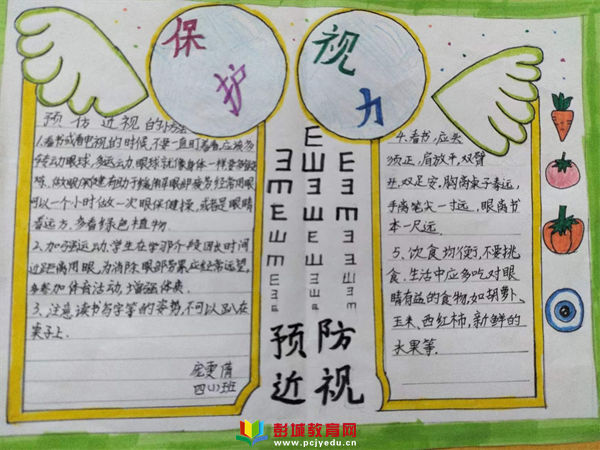 保护
视力
预估近视的小方法
1.看书或看电视的时候,不要一直盯着看,应该多
转动眼球,多运动,眼球就像身体一样要多锻
炼。做眼保健有助于缓解眼部疲劳经常用眼
可以一个小时做一次眼保健操,或者是眼睛
看远方,多看绿色植物.
2.加强运动、学生在学习阶段因长时间
近距离用眼,为消除眼部劳累应经常远望,
多参加体育活动,增强体质
3、注意读书与字等的姿势,不可以趴在
桌子上.
四(4)班
E
预防
近视
4.看书,应头
须正,肩放平,双臂
双足安,胸离桌子春远,
手离笔尖一寸远,眼离书
本一尺远.
5、饮食均衡,不要挑
食.生活中应多吃对眼
睛有益的食物,如胡萝卜、
玉米、西红柿,新鲜的
水果等.
彭城教育网
www.pcjyedu.cn